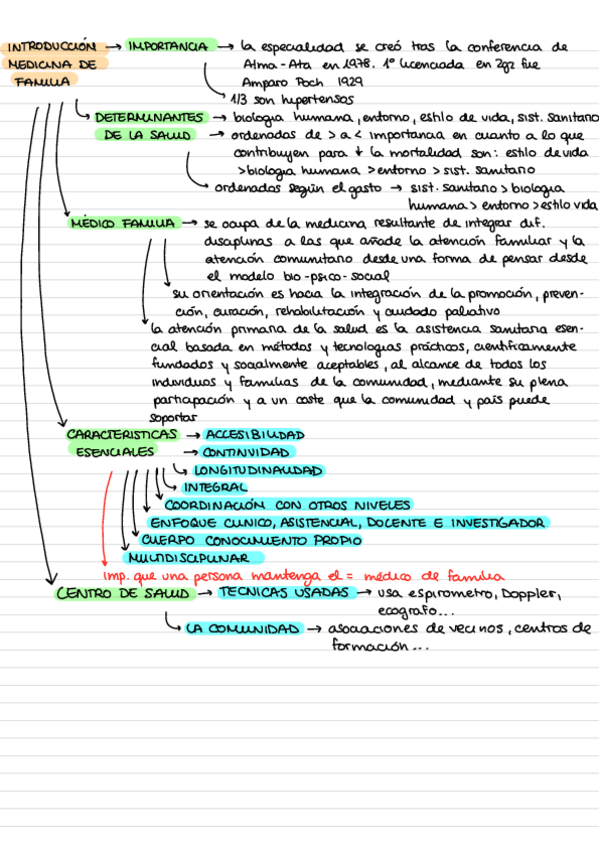 INTRODUCCIÓN → IMPORTANCIA → la especialidad se creó tras la conferencia de
MEDICINA DE Alma-Ata en 1978. 1º licenciada en Zgz fue
FAMILIA Amparo Poch 1929
1/3 son hipertensos
DETERMINANTES → biología humana, entorno, estilo de vida, sist. sanitario
DE LA SALUD → ordenados de > a < importancia en cuanto a lo que
contribuyen para ↓ la mortalidad son: estilo de vida
> biología humana > entorno > sist. sanitario
ordenados según el gasto → sist. sanitario > biología
humana > entorno > estilo vida
MÉDICO FAMILIA → se ocupa de la medicina resultante de integrar dif.
disciplinas a las que añade la atención familiar y la
atención comunitario desde una forma de pensar desde
el modelo bio-psico-social
su orientación es hacia la integración de la promoción, preven-
ción, curación, rehabilitación y cuidado paliativo
la atención primaria de la salud es la asistencia sanitaria esen-
cial basada en métodos y tecnologías prácticos, científicamente
fundados y socialmente aceptables, al alcance de todos los
individuos y familias de la comunidad, mediante su plena
participación y a un coste que la comunidad y país puede
soportar
CARACTERISTICAS → ACCESIBILIDAD
ESENCIALES → CONTINVIDAD
LONGITUDINALIDAD
INTEGRAL
COORDINACIÓN CON OTROS NIVELES
ENFOQUE CLINICO, ASISTENCIAL, DOCENTE E INVESTIGADOR
CUERPO CONOCIMIENTO PROPIO
MULTIDISCIPLINAR
imp. que una persona mantenga el = médico de familia
CENTRO DE SALUD → TECNICAS USADAS → usa espirometro, Doppler,
ecografo...
LA COMUNIDAD → asociaciones de vecinos, centros de
formación...